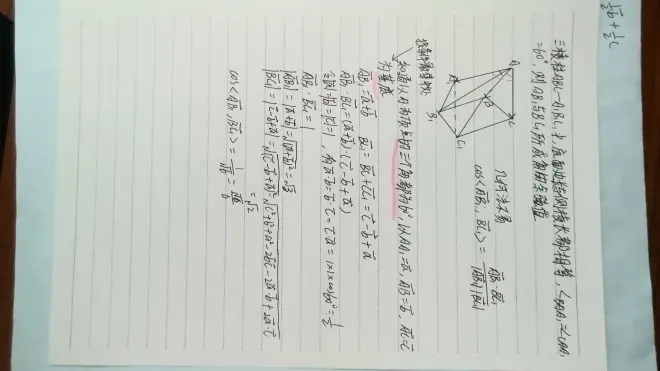 ½b + ½c
三棱柱ABC-A₁B₁C₁中,底面边长和侧棱长都相等,∠BAA₁=∠CAA₁
=60°,则AB₁与BC₁所成角的余弦值
A
B
C
A₁
B₁
C₁
几何法不易
cos<AB₁, BC₁> = AB₁·BC₁ / |AB₁||BC₁|
找条件最多转化:
如图以A为顶点的三个角都为60°,以AA₁=a, AB=b, AC=c
为基底
AB₁=a+b BC₁=BC+CC₁=c-b+a
AB₁·BC₁=(a+b)·(c-b+a)
|a|=|b|=|c|=1, a·b=b·c=c·a=1×1×cos60°=½
AB₁·BC₁=1
|AB₁|=|a+b|=√(a+b)²=√3
|BC₁|=|c-b+a|=√(c-b+a)²=√c²+b²+a²-2bc-2a·b+2a·c
=√2
cos<AB₁, BC₁> = 1/√6 = √6/6